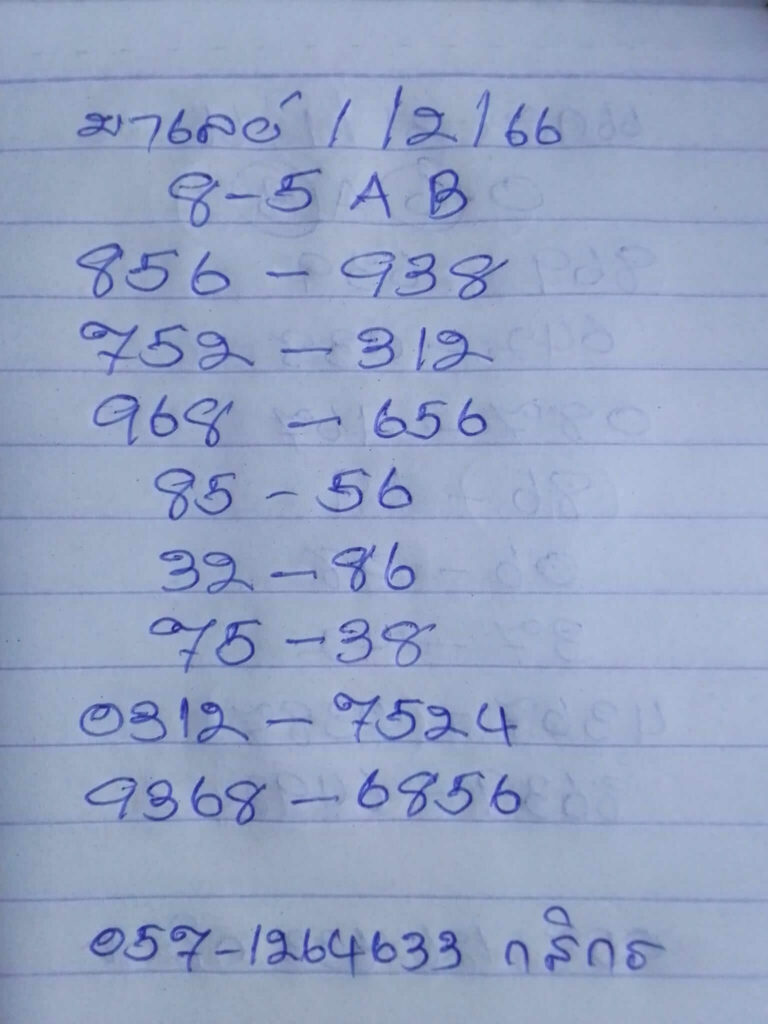 มาเลย์ 1/2/66
8-5 A B
856-938
752-312
968-656
85-56
32-86
75-38
0312-7524
9368-6856
057-1264633 กสิกร